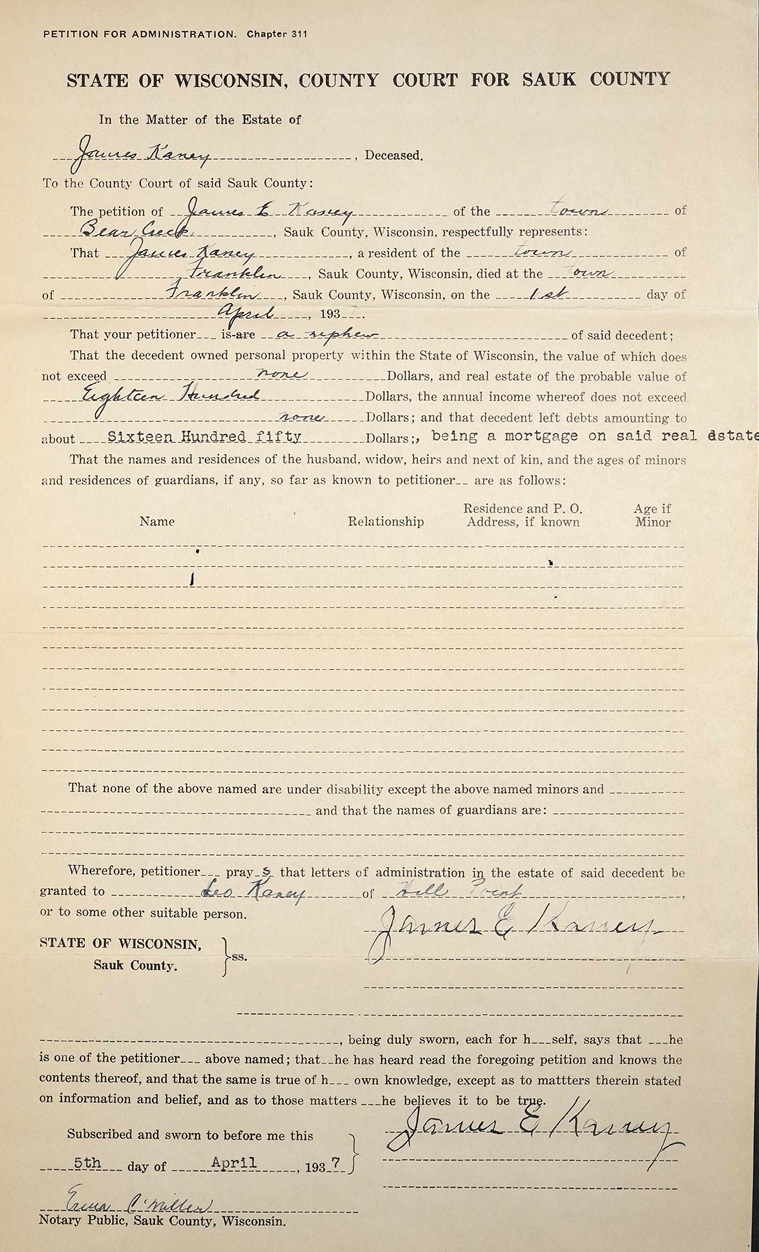 PETITION FOR ADMINISTRATION. Chapter 311
STATE OF WISCONSIN, COUNTY COURT FOR SAUK COUNTY
In the Matter of the Estate of
James Kaney, Deceased.
To the County Court of said Sauk County:
The petition of James E Kaney of the town of
Bear Creek, Sauk County, Wisconsin, respectfully represents:
That James Kaney, a resident of the town of
Franklin, Sauk County, Wisconsin, died at the town
of Franklin, Sauk County, Wisconsin, on the 1st day of
April, 193__.
That your petitioner___ is-are a nephew of said decedent;
That the decedent owned personal property within the State of Wisconsin, the value of which does
not exceed none Dollars, and real estate of the probable value of
Eighteen Hundred Dollars, the annual income whereof does not exceed
none Dollars; and that decedent left debts amounting to
about Sixteen Hundred fifty Dollars;, being a mortgage on said real estate
That the names and residences of the husband, widow, heirs and next of kin, and the ages of minors
and residences of guardians, if any, so far as known to petitioner__ are as follows:
Name Relationship Residence and P. O. Address, if known Age if Minor
That none of the above named are under disability except the above named minors and
and that the names of guardians are:
Wherefore, petitioner___ pray_s that letters of administration in the estate of said decedent be
granted to Leo Kaney of Hill Point,
or to some other suitable person.
James E Kaney
STATE OF WISCONSIN,
Sauk County. } ss.
, being duly sworn, each for h___self, says that ___he
is one of the petitioner___ above named; that__he has heard read the foregoing petition and knows the
contents thereof, and that the same is true of h___ own knowledge, except as to mattters therein stated
on information and belief, and as to those matters ___he believes it to be true.
James E Kaney
Subscribed and sworn to before me this
5th day of April, 1937
Miller
Notary Public, Sauk County, Wisconsin.